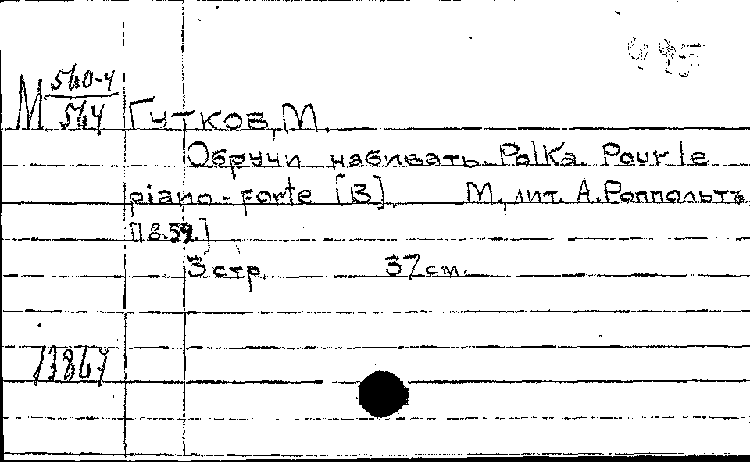 М 560-4
564
Гутков, М.
Обручи набивать. Polka. Pour le
piano-forte [B]. М., лит. А. Роппольтъ
[1859.]
3 стр. 37 см.
13867